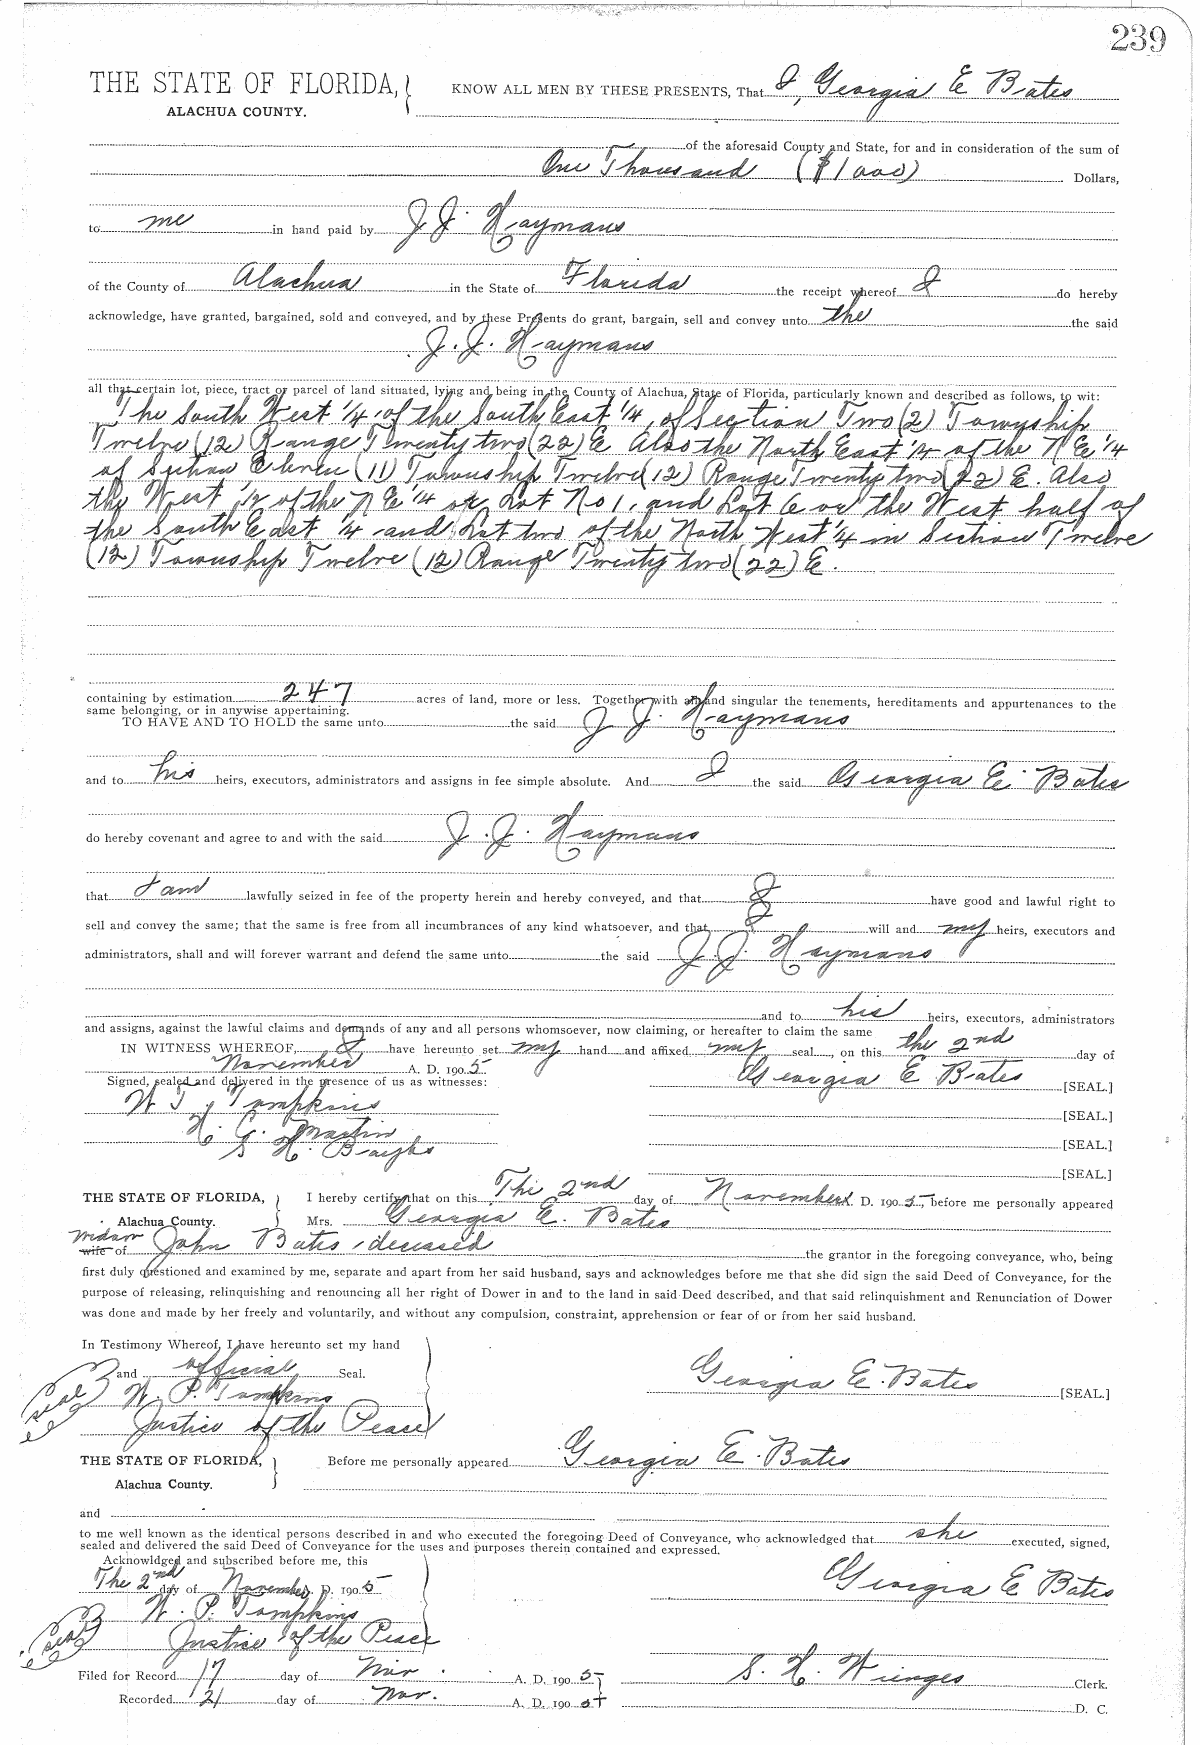 239
THE STATE OF FLORIDA, KNOW ALL MEN BY THESE PRESENTS, That I, Georgia E Bates
ALACHUA COUNTY.
of the aforesaid County and State, for and in consideration of the sum of
One Thousand ($1000) Dollars,
to me in hand paid by J. J. Haymans
of the County of Alachua in the State of Florida the receipt whereof I do hereby
acknowledge, have granted, bargained, sold and conveyed, and by these Presents do grant, bargain, sell and convey unto the the said
J. J. Haymans
all that certain lot, piece, tract or parcel of land situated, lying and being in the County of Alachua, State of Florida, particularly known and described as follows, to wit:
The South West 1/4 of the South East 1/4, of Section Two (2) Township
Twelve (12) Range Twenty two (22) E Also the North East 1/4 of the N E 1/4
of Section Eleven (11) Township Twelve (12) Range Twenty two (22) E. Also
the West 1/2 of the N E 1/4 or Lot No 1, and Lot 6 or the West half of
the South East 1/4 and Lot two of the North West 1/4 in Section Twelve
(12) Township Twelve (12) Range Twenty two (22) E.
containing by estimation 247 acres of land, more or less. Together with all and singular the tenements, hereditaments and appurtenances to the
same belonging, or in anywise appertaining.
TO HAVE AND TO HOLD the same unto the said J. J. Haymans
and to his heirs, executors, administrators and assigns in fee simple absolute. And I the said Georgia E. Bates
do hereby covenant and agree to and with the said J. J. Haymans
that I am lawfully seized in fee of the property herein and hereby conveyed, and that I have good and lawful right to
sell and convey the same; that the same is free from all incumbrances of any kind whatsoever, and that I will and my heirs, executors and
administrators, shall and will forever warrant and defend the same unto the said J. J. Haymans
and to his heirs, executors, administrators
and assigns, against the lawful claims and demands of any and all persons whomsoever, now claiming, or hereafter to claim the same
IN WITNESS WHEREOF, I have hereunto set my hand and affixed my seal, on this the 2nd day of
November A. D. 1905
Signed, sealed and delivered in the presence of us as witnesses: Georgia E Bates [SEAL.]
W. P. Tompkins [SEAL.]
H. G. Martin [SEAL.]
S H. [SEAL.]
THE STATE OF FLORIDA, I hereby certify that on this The 2nd day of November A. D. 1905, before me personally appeared
Alachua County. Mrs. Georgia E. Bates
widow
wife of John Bates, deceased the grantor in the foregoing conveyance, who, being
first duly questioned and examined by me, separate and apart from her said husband, says and acknowledges before me that she did sign the said Deed of Conveyance, for the
purpose of releasing, relinquishing and renouncing all her right of Dower in and to the land in said Deed described, and that said relinquishment and Renunciation of Dower
was done and made by her freely and voluntarily, and without any compulsion, constraint, apprehension or fear of or from her said husband.
In Testimony Whereof, I have hereunto set my hand
and official Seal.
seal W. P. Tompkins Georgia E. Bates [SEAL.]
Justice of the Peace
THE STATE OF FLORIDA, Before me personally appeared Georgia E. Bates
Alachua County.
and
to me well known as the identical persons described in and who executed the foregoing Deed of Conveyance, who acknowledged that she executed, signed,
sealed and delivered the said Deed of Conveyance for the uses and purposes therein contained and expressed.
Acknowldged and subscribed before me, this
The 2nd day of November A. D. 1905 Georgia E Bates
W. P. Tompkins
seal Justice of the Peace
Filed for Record 17 day of Nov. A. D. 1905 S. H. Wienges Clerk.
Recorded 21 day of Nov. A. D. 1905 D. C.